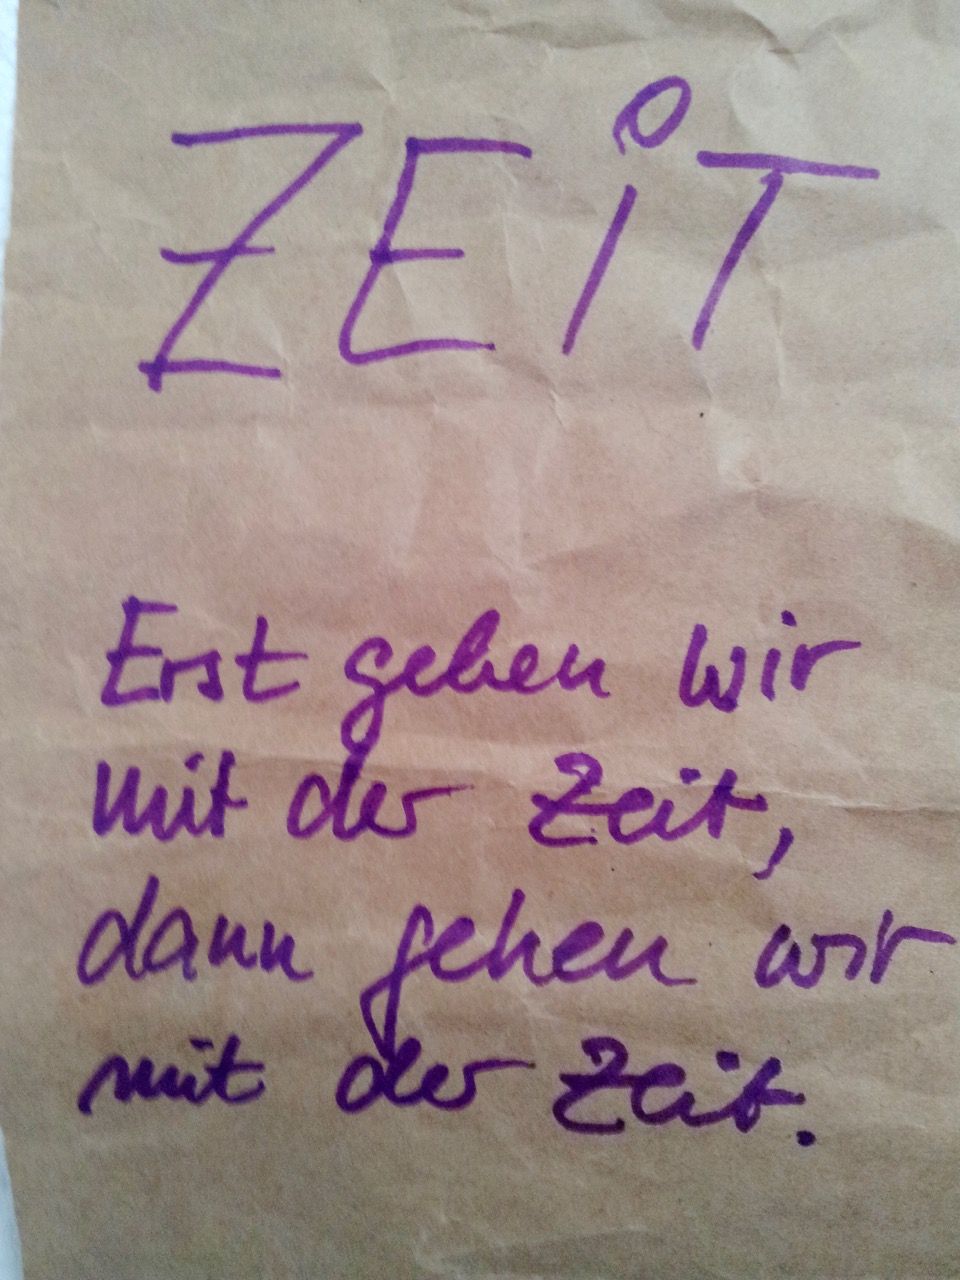 ZEiT
Erst gehen wir
mit der Zeit,
dann gehen wir
mit der Zeit.